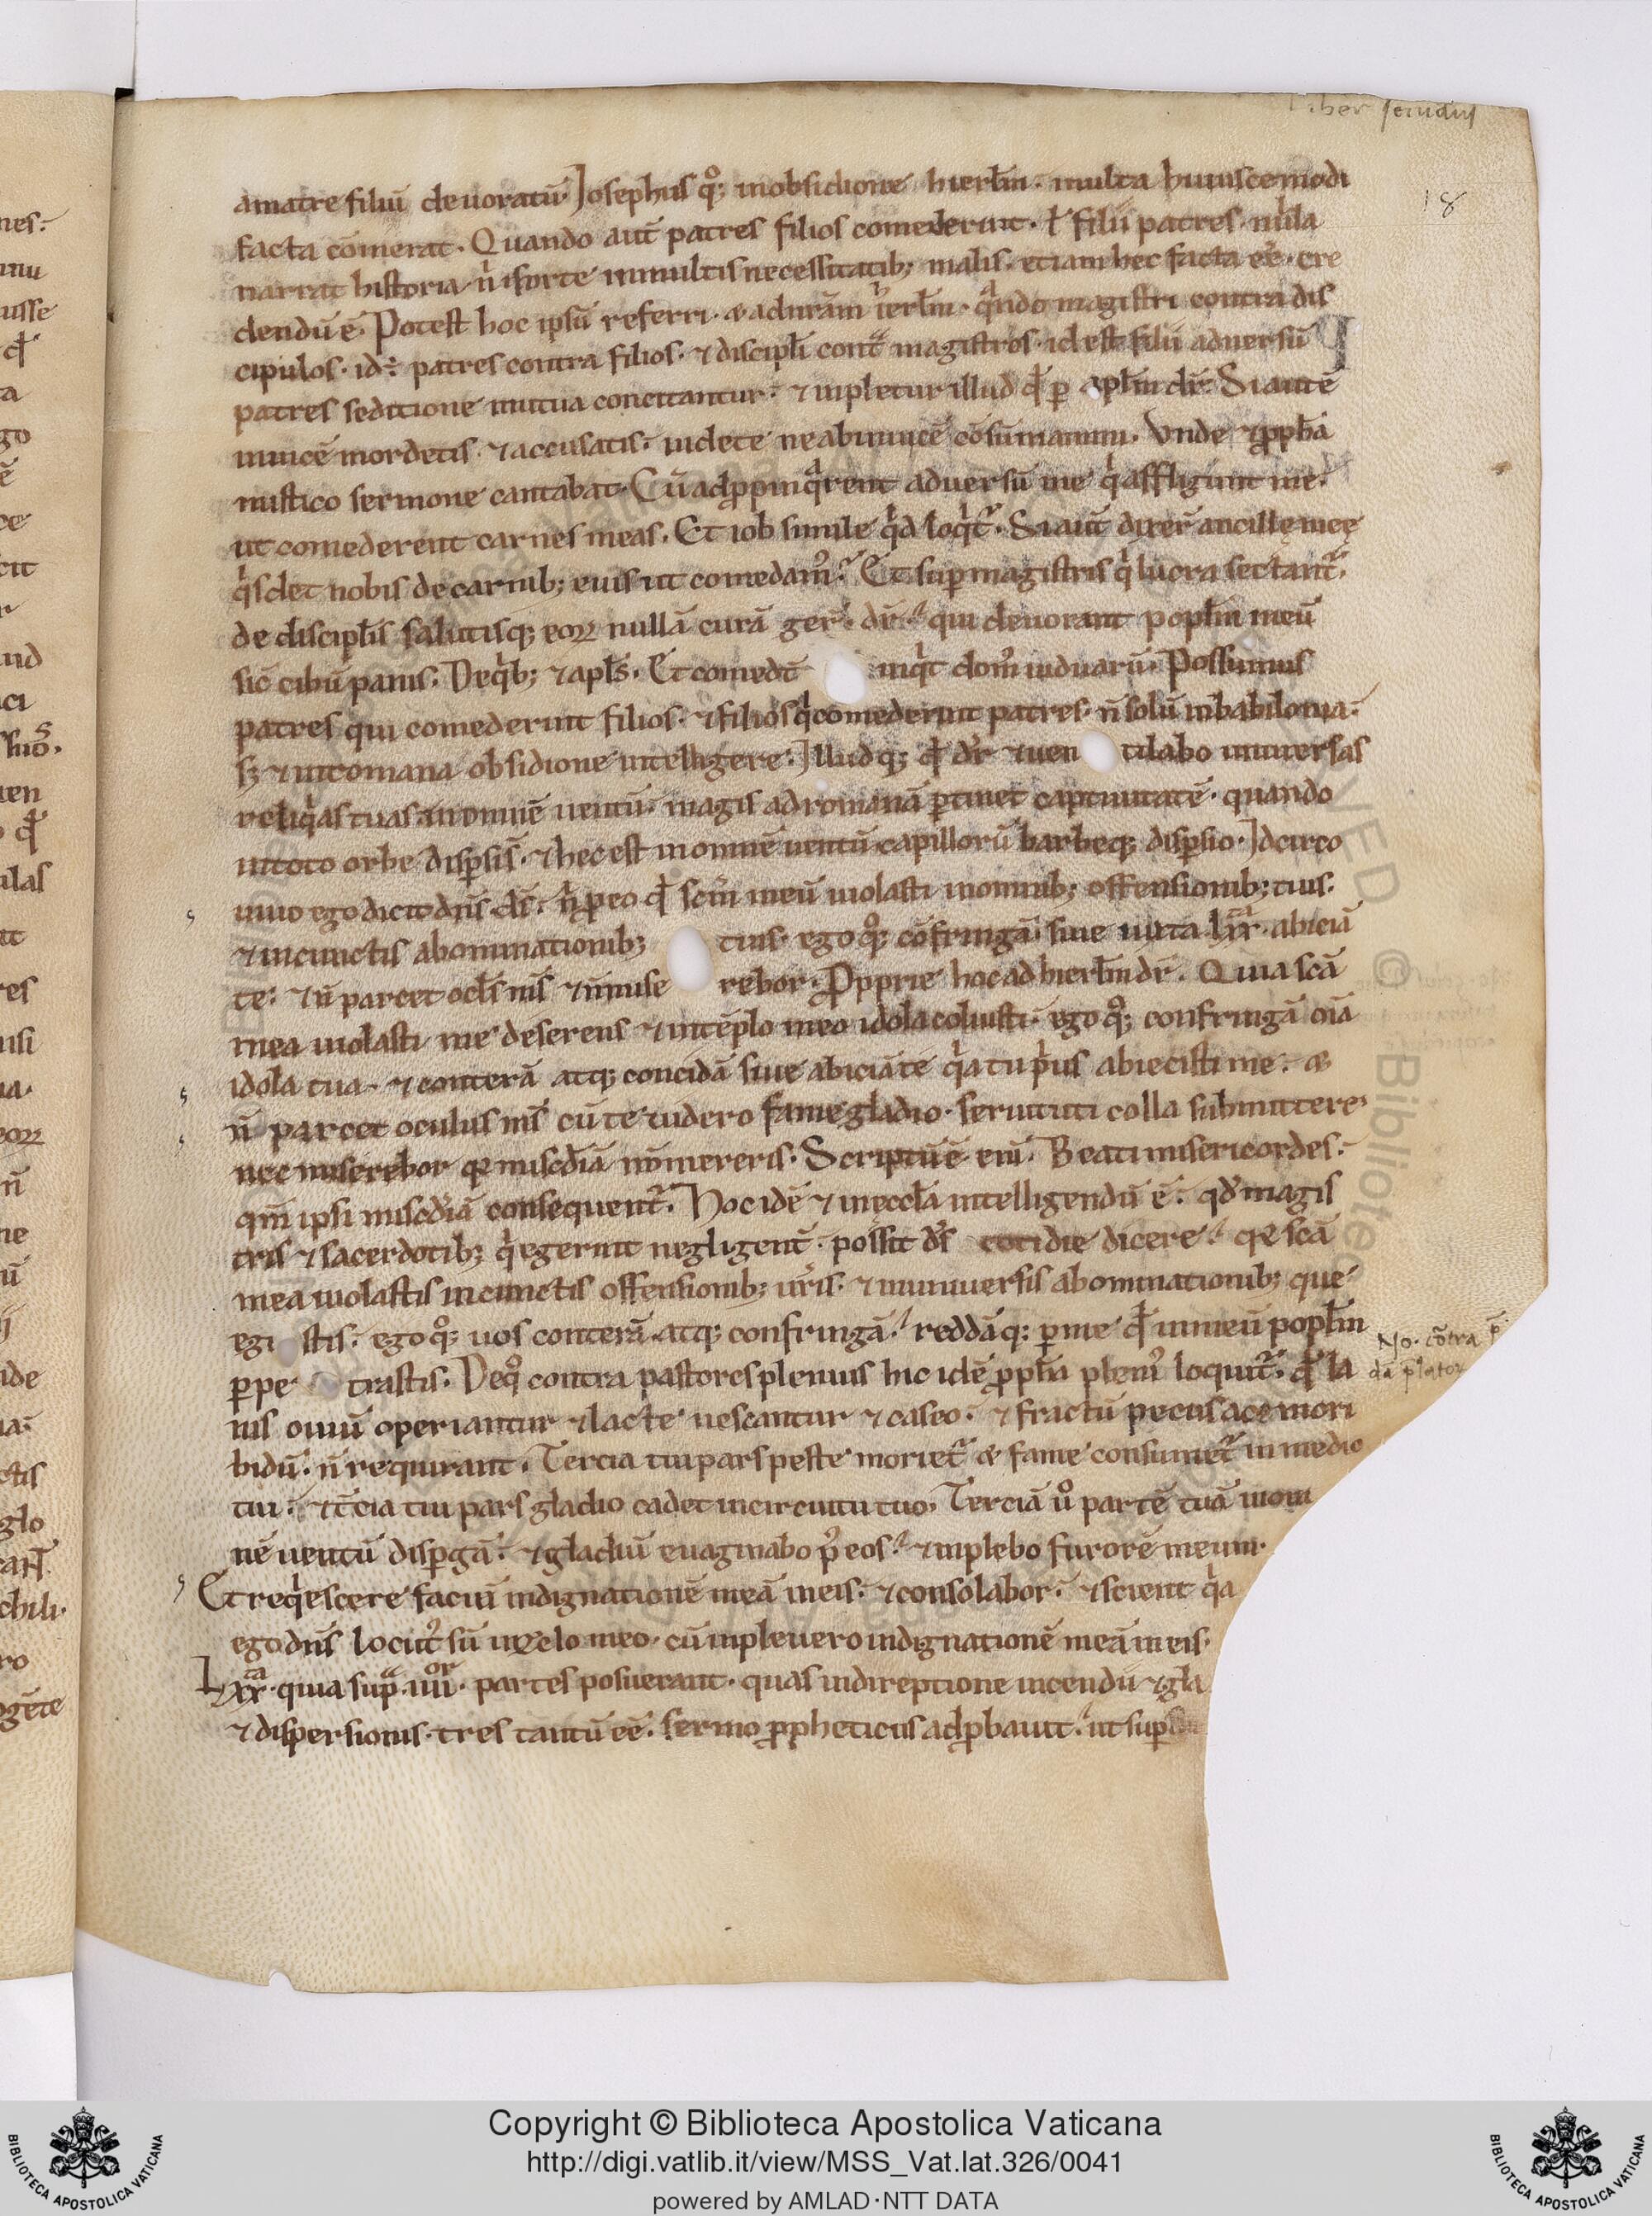 Liber secundus
18
amatre filiū deuoratū. Josephus qͦ; inobsidione hierłm. multa huiuscemodi
facta cōmerat. Quando aut̄ patres filios comederint. ł filii patres. nulla
narrat historia. nisi forte inmultis necessitatib; malis. etiam hec facta eē. cre
dendū ē. Potest hoc ipsū referri. & aduram ierłm. qͣndo magistri contra dis
cipulos. id÷ patres contra filios. ⁊ discipłi contͣ magistros. id est filii aduersū
patres seditione mutua concitantur. ⁊ inpletur illud qđ ꝑ apłm dr̄. Si autē
inuicē mordetis. ⁊ accusatis. uidete neabinuicē cōsumamini. Vnde ⁊ ꝓpha
mistico sermone cantabat. Cū adꝓpinqͣrent aduersū me qⁱ affligunt me.
ut comederent carnes meas. Et iob simile qⁱd loqⁱt᷑. Si aut̄ dixer̄ ancillę meę
qⁱs det nobis de carnib; euis ut comedamꝰ. Et suꝑ magistris qⁱ lucra sectant᷑.
de discipłis salutisq; eoꝝ nullā curā ger̄. dr̄. qui deuorant popłm meū
sic̄ cibū panis. De qⁱb; ⁊ apłs. Et comedt̄ inqⁱt domꝰ uiduarū. Possumus
patres qui comederint filios. ⁊ filios qⁱ comederint patres. n̄ solū inbabilonia.
sꝫ ⁊ inromana obsidione intelligere. Illud q; qđ dr̄ ⁊ uen tilabo uniuersas
reliqⁱas tuas. in omnē uentū. magis adromanā ꝑtinet captiuitatē. quando
intoto orbe disꝑsis. ⁊ hec est inomnē uentū capillorū barbeq; disꝑsio. Jdcirco
uiuo ego dicit dn̄s ds̄. nͥ ꝓ eo qđ sc̄m meū uiolasti inomnib; offensionib; tuis.
⁊ incunctis abominationib; tuis. ego qͦ; cōfringā. siue iuxta lxxͣ. abiciā
te. ⁊ n̄ parcet ocłs ms̄ ⁊ n̄ mise rebor. Ꝓpprie hoc ad hierłm dr̄. Quia scā
mea uiolasti me deserens ⁊ intēplo meo idola coluisti. ego qͦ; confringā oīa
idola tua. ⁊ conterā atq; concidā siue abiciā te qⁱa tu pⁱus abiecisti me. &
n̄ parcet oculus ms̄ cū te tudero fame gladio. seruituti colla submittere
nec miserebor qꝛ mis̄cdiā nōmereris. Scriptū ē eni. Beati misericordes.
qm̄ ipsi mis̄cdiā consequent᷑. Hoc idē ⁊ inęccła intelligendū ē. qđ magis
tris ⁊ sacerdotib; qⁱ egerint negligent̄. possit ds̄ cotidie dicere. qꝛ scā
mea uiolastis incunctis offensionib; ur̄is. ⁊ inuniuersis abominationib; que
egi stis. ego qͦ; uos conterā atq; confringā. reddāq; ꝑ me qđ inmeū popłm
ꝑpe trastis. De qͦ contra pastores plenius hic idē ꝓpha plenꝰ loquit᷑. qđ la
nis ouiū operiantur ⁊ lacte uescantur ⁊ caseo. ⁊ fractū pecus ac mori
bidū. n̄ requirant. Tercia tui pars peste moriet᷑ & fame consumet᷑ in medio
tui. ⁊ t̄cia tui pars gladio cadet incircuitu tuo. Terciā uͦ partē tuā inom
nē uentū disꝑgā. ⁊ gladiū euaginabo pꝰ eos. ⁊ inplebo furorē meum.
Et reqⁱescere faciā indignationē meā ineis. ⁊ consolabor. ⁊ scient qⁱa
ego dn̄s locutꝰ sū inzelo meo. cū inpleuero indignationē meā ineis.
Lxxͣ. quia supͣ. iiiiᵒʳ. partes posuerant. quas indireptione incendii ⁊ gla
⁊ dispersionis. tres tantū eē. sermo ꝓpheticus adꝓbauit. ut supͣ
No. cōtra p̄
dā p̄lator